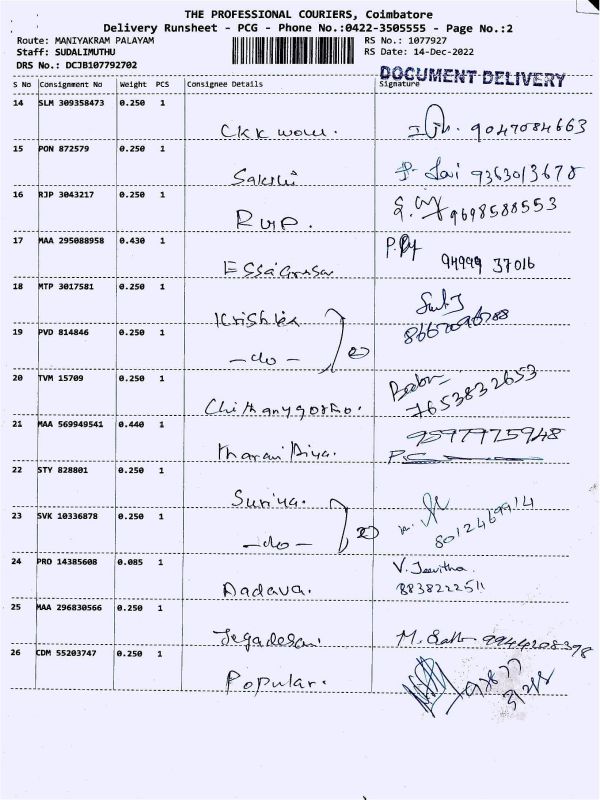 THE PROFESSIONAL COURIERS, Coimbatore
Delivery Runsheet - PCG - Phone No.:0422-3505555 - Page No.:2
Route: MANIYAKRAM PALAYAM RS No.: 1077927
Staff: SUDALIMUTHU RS Date: 14-Dec-2022
DRS No.: DCJB107792702
DOCUMENT DELIVERY
S No Consignment No Weight PCS Consignee Details Signature
14 SLM 309358473 0.250 1
CKK 9047084663
15 PON 872579 0.250 1
Sakthi Sai 9363013678
16 RJP 3043217 0.250 1
9698588553
17 MAA 295088958 0.430 1
94999 37016
18 MTP 3017581 0.250 1
19 PVD 814846 0.250 1
-do- 2
20 TVM 15709 0.250 1
7653832653
21 MAA 569949541 0.440 1
9597775948
22 STY 828801 0.250 1
Suriya.
23 SVK 10336878 0.250 1
-do- 2 8012469914
24 PRO 14385608 0.085 1
V. Jeevitha
Aadava. 8838222511
25 MAA 296830566 0.250 1
Jegadesan. 9944208378
26 CDM 55203747 0.250 1
Popular.